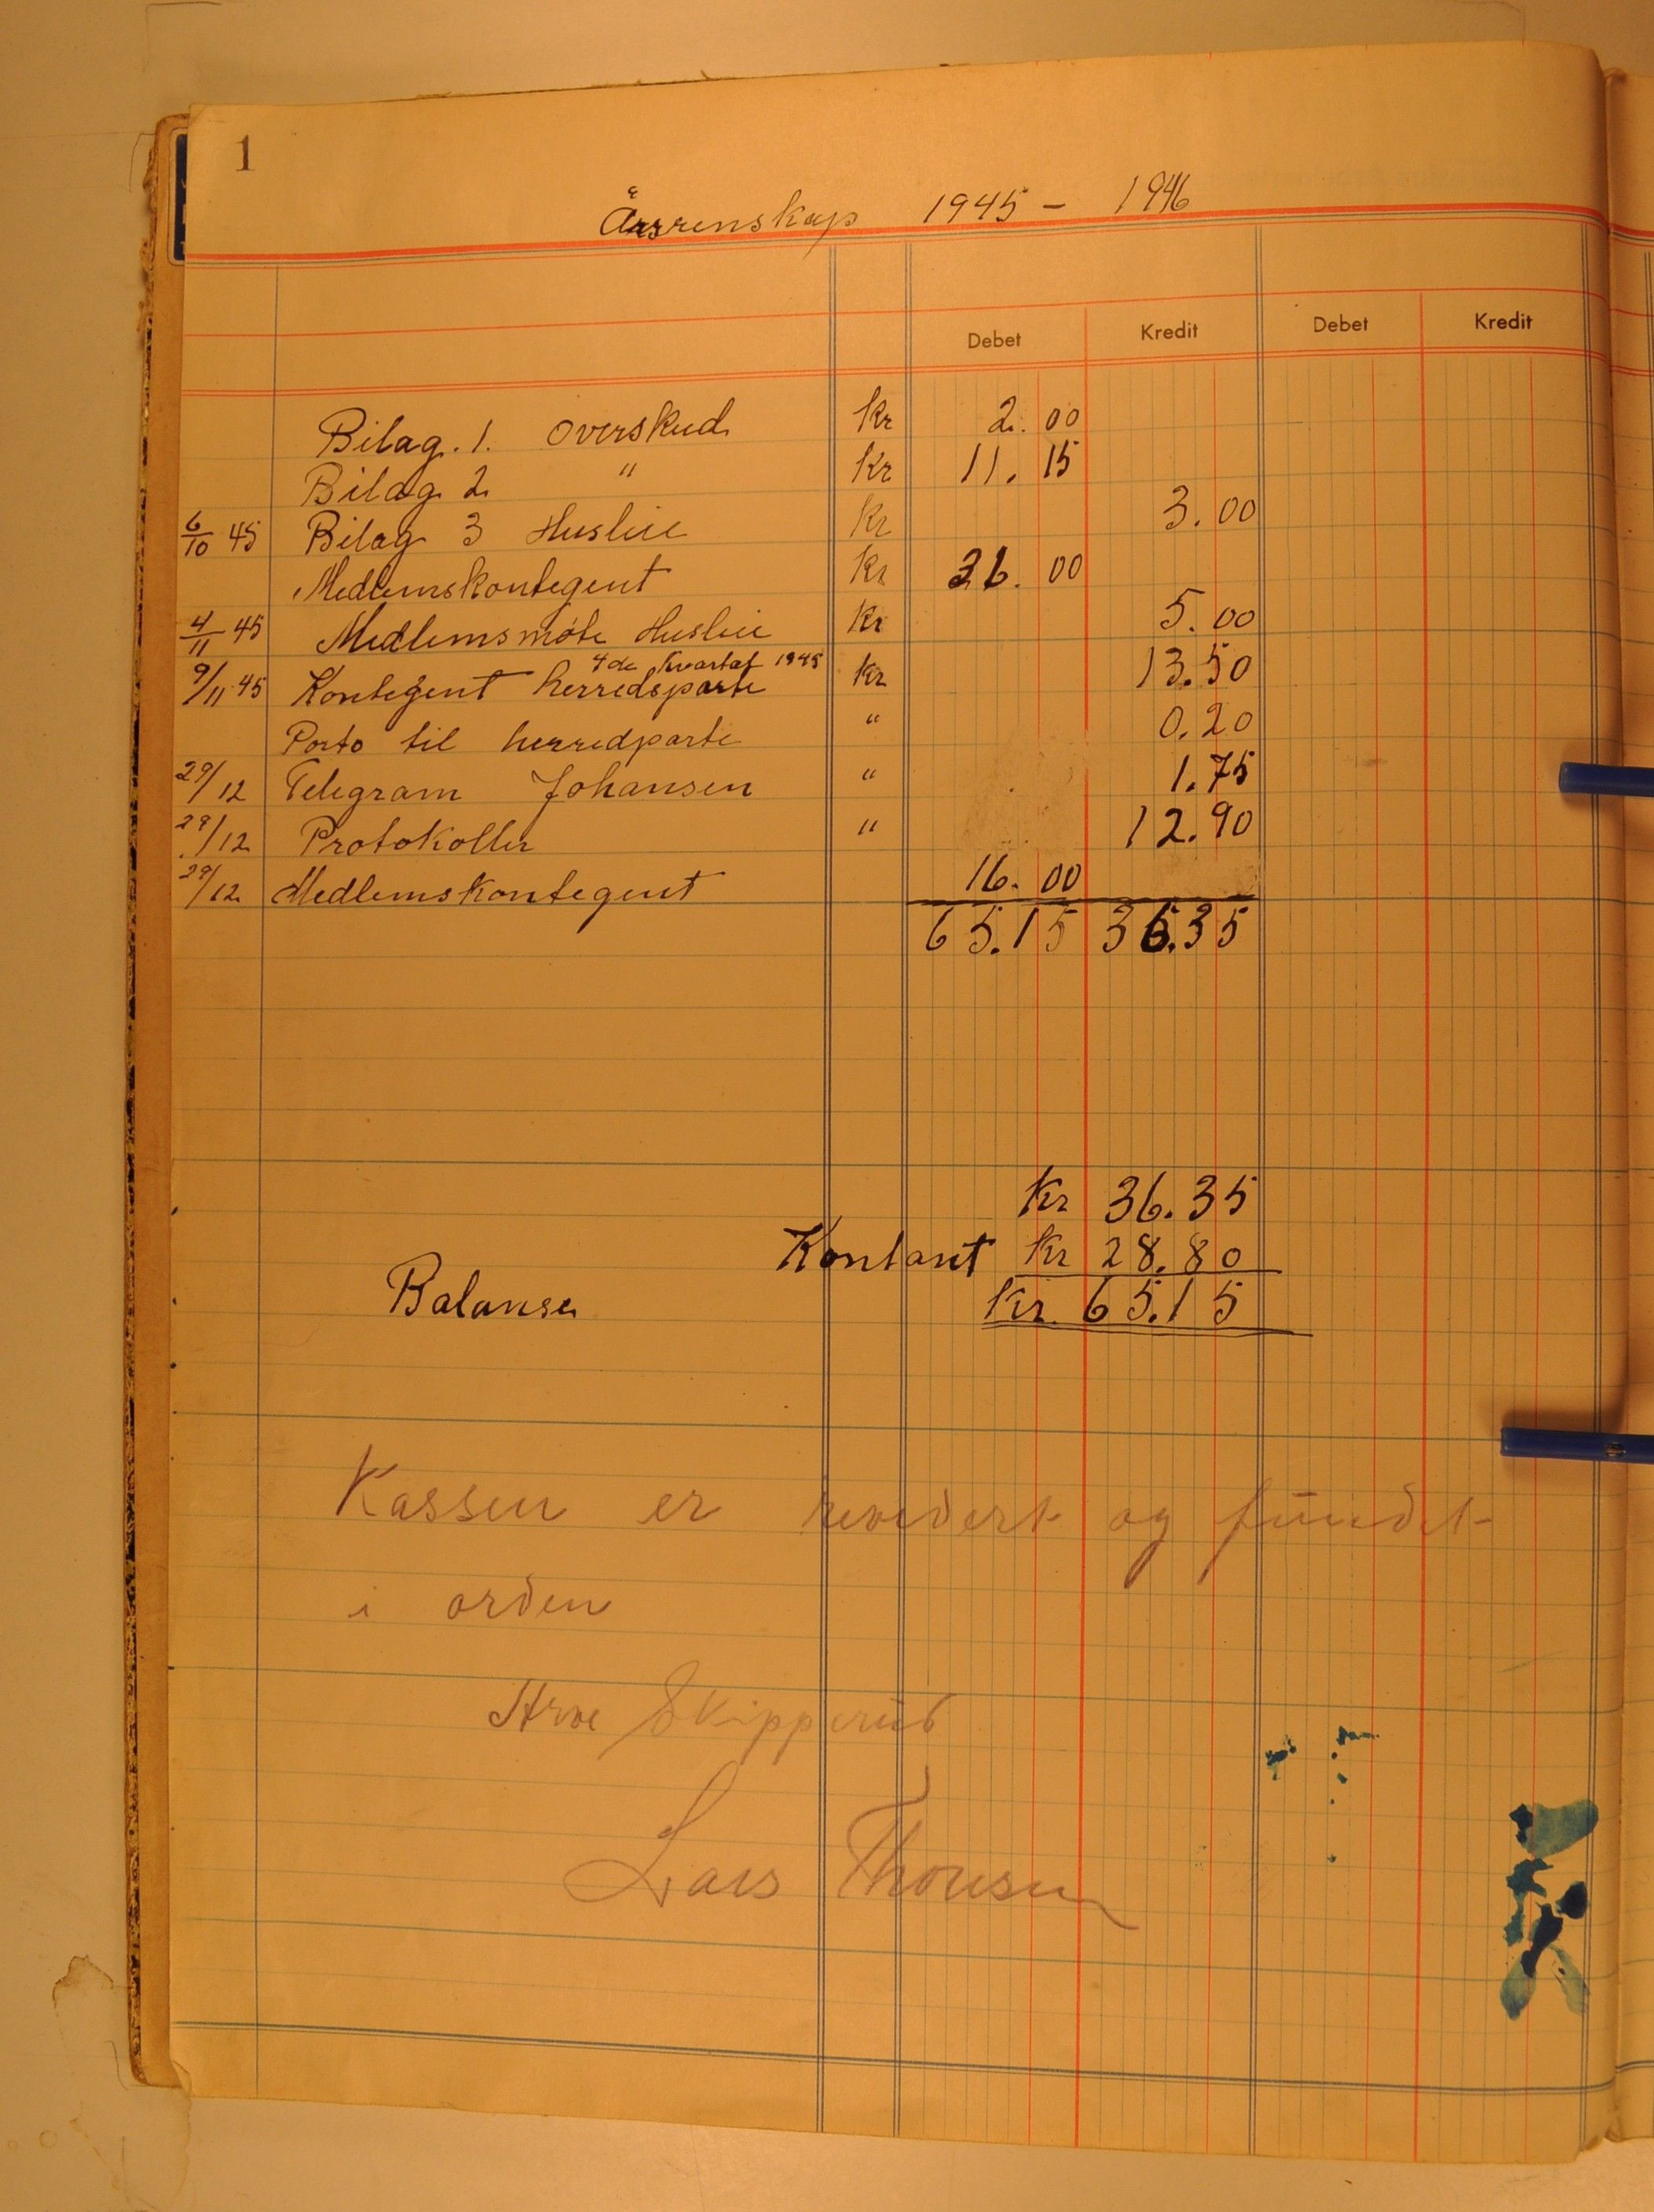 1
Årsrenskap 1945 - 1946
Debet Kredit Debet Kredit
Bilag. 1. Overskud Kr 2.00
Bilag 2 " Kr 11.15
6/10 45 Bilag 3 Husleie Kr 3.00
Medlemskontegent Kr 36.00
4/11 45 Medlemsmöte Husleie Kr 5.00
4de Kvartal 1945
9/11 45 Kontegent herredsparte Kr 13.50
Porto til herredparte " 0.20
29/12 Telegram Johansen " 1.75
29/12 Protokoller " 12.90
29/12 Medlemskontegent 16.00
65.15 36.35
Kr 36.35
Kontant Kr 28.80
Balanse Kr. 65.15
Kassen er revidert og fundet
i orden
Arve Skipperud
Lars Thonsen